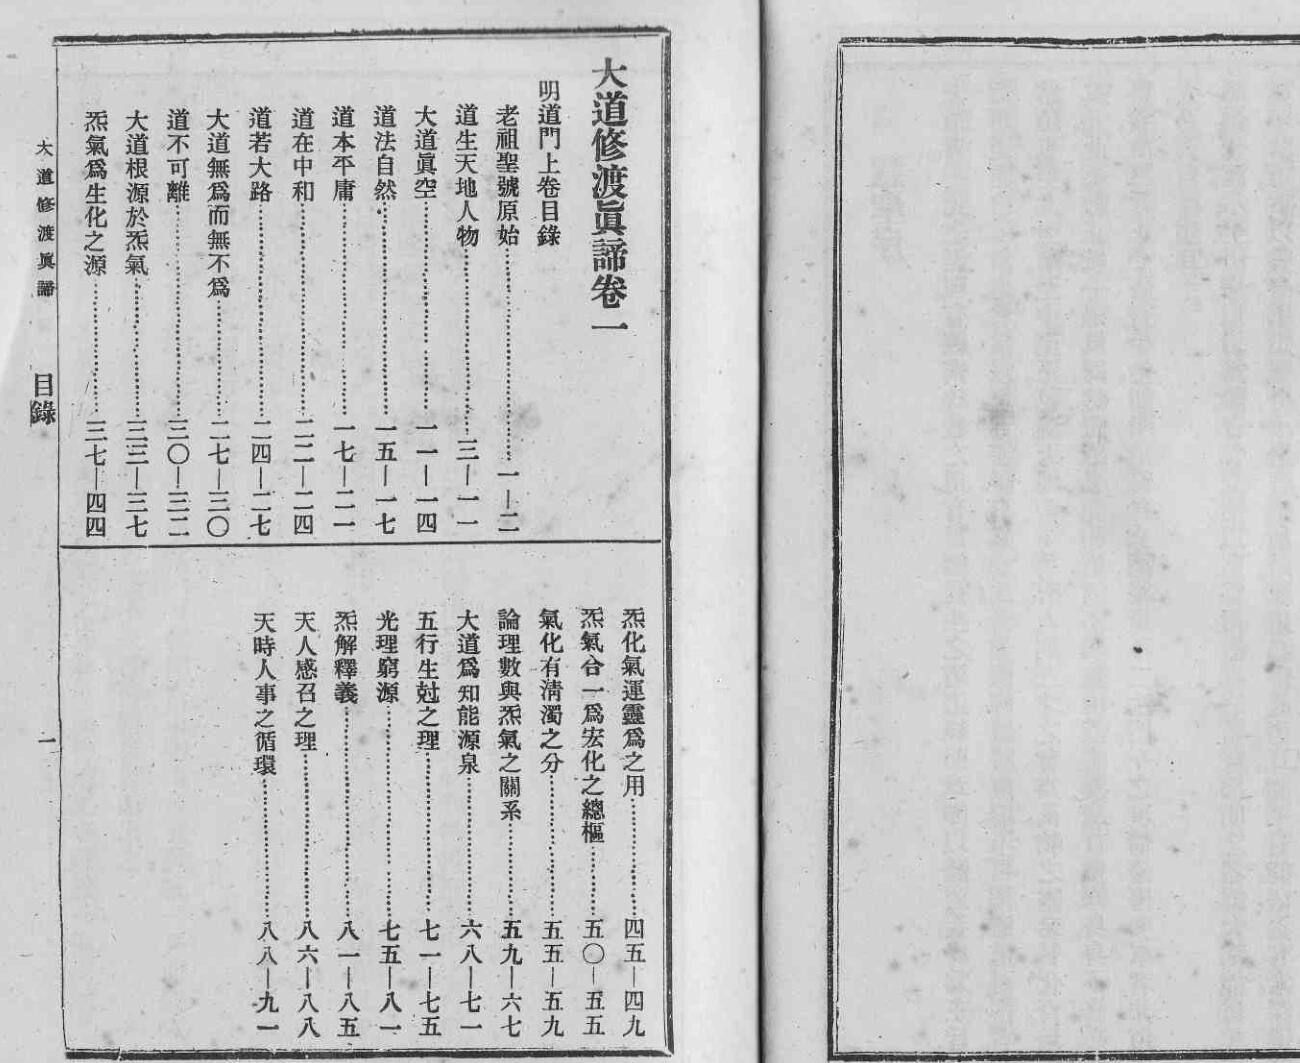 大道修渡眞諦卷一
明道門上卷目錄
老祖聖號原始……一—二
道生天地人物……三—一一
大道眞空……一一—一四
道法自然……一五—一七
道本平庸……一七—二一
道在中和……二二—二四
道若大路……二四—二七
大道無爲而無不爲……二七—三〇
道不可離……三〇—三二
大道根源於炁氣……三三—三七
炁氣爲生化之源……三七—四四
炁化氣運靈爲之用……四五—四九
炁氣合一爲宏化之總樞……五〇—五五
氣化有淸濁之分……五五—五九
論理數與炁氣之關系……五九—六七
大道爲知能源泉……六八—七一
五行生尅之理……七一—七五
光理窮源……七五—八一
炁解釋義……八一—八五
天人感召之理……八六—八八
天時人事之循環……八八—九一
大道修渡眞諦
目錄
一